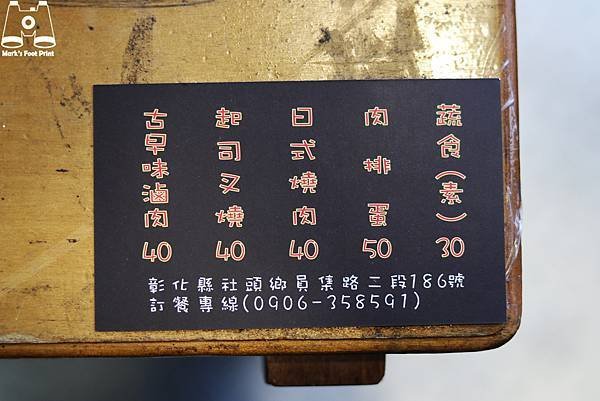 Mark's Foot Print
蔬食(素) 30
肉排蛋 50
日式燒肉 40
起司叉燒 40
古早味滷肉 40
彰化縣社頭鄉員集路二段186號
訂餐專線(0906-358591)